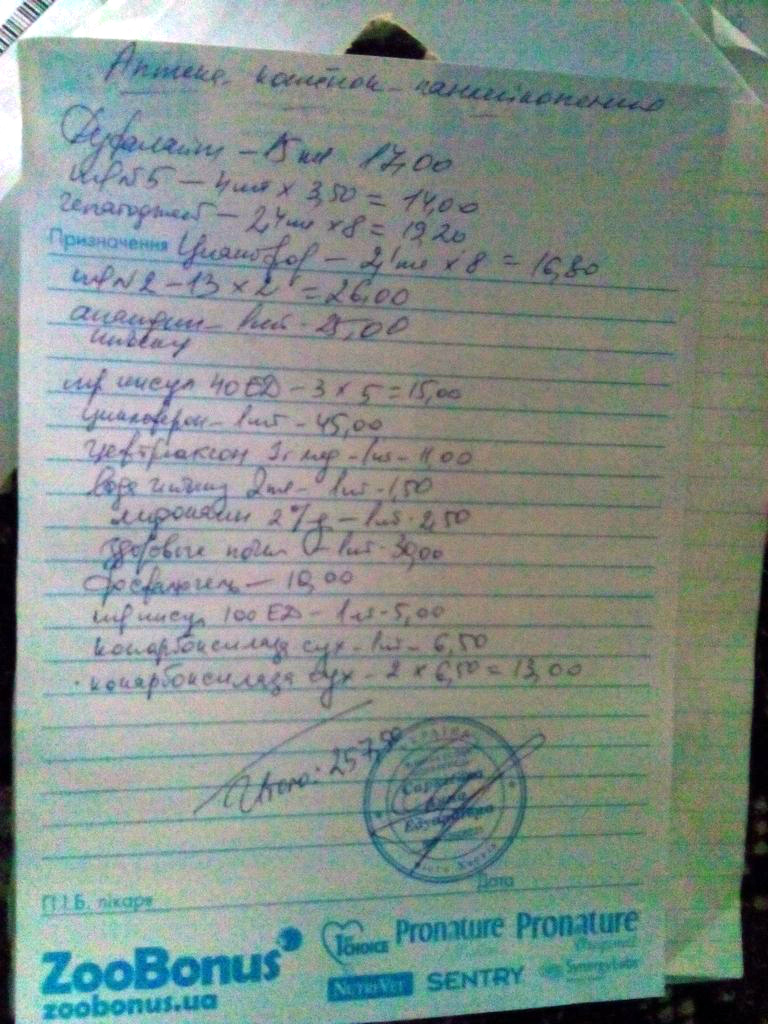 Аптека котёнок
Дуфалайт - 15 мл 17,00
шп №5 - 4шт x 3,50 = 14,00
гепатоджект - 2,4 мл x 8 = 19,20
Призначення
- 2,1 мл x 8 = 16,80
шп №2 - 13 x 2 = 26,00
- 1шт - 25,00
шп инсул 40 ED - 3 x 5 = 15,00
Циклоферон - 1шт - 45,00
Цефтриаксон - 1шт - 11,00
Вода 2мл - 1шт - 1,50
лидокаин 2% - 1шт - 2,50
Здоровые почки - 1шт - 30,00
Фосфалюгель - 10,00
шп инсул 100 ED - 1шт - 5,00
кокарбоксилаза сух - 1шт - 6,50
кокарбоксилаза сух - 2 x 6,50 = 13,00
Итого: 257,50
УКРАЇНА
Едуардівна
П.І.Б. лікаря
Дата
ZooBonus
zoobonus.ua
1st CHOICE
Pronature Pronature
Original
NutriVet
SENTRY
SynergyLabs